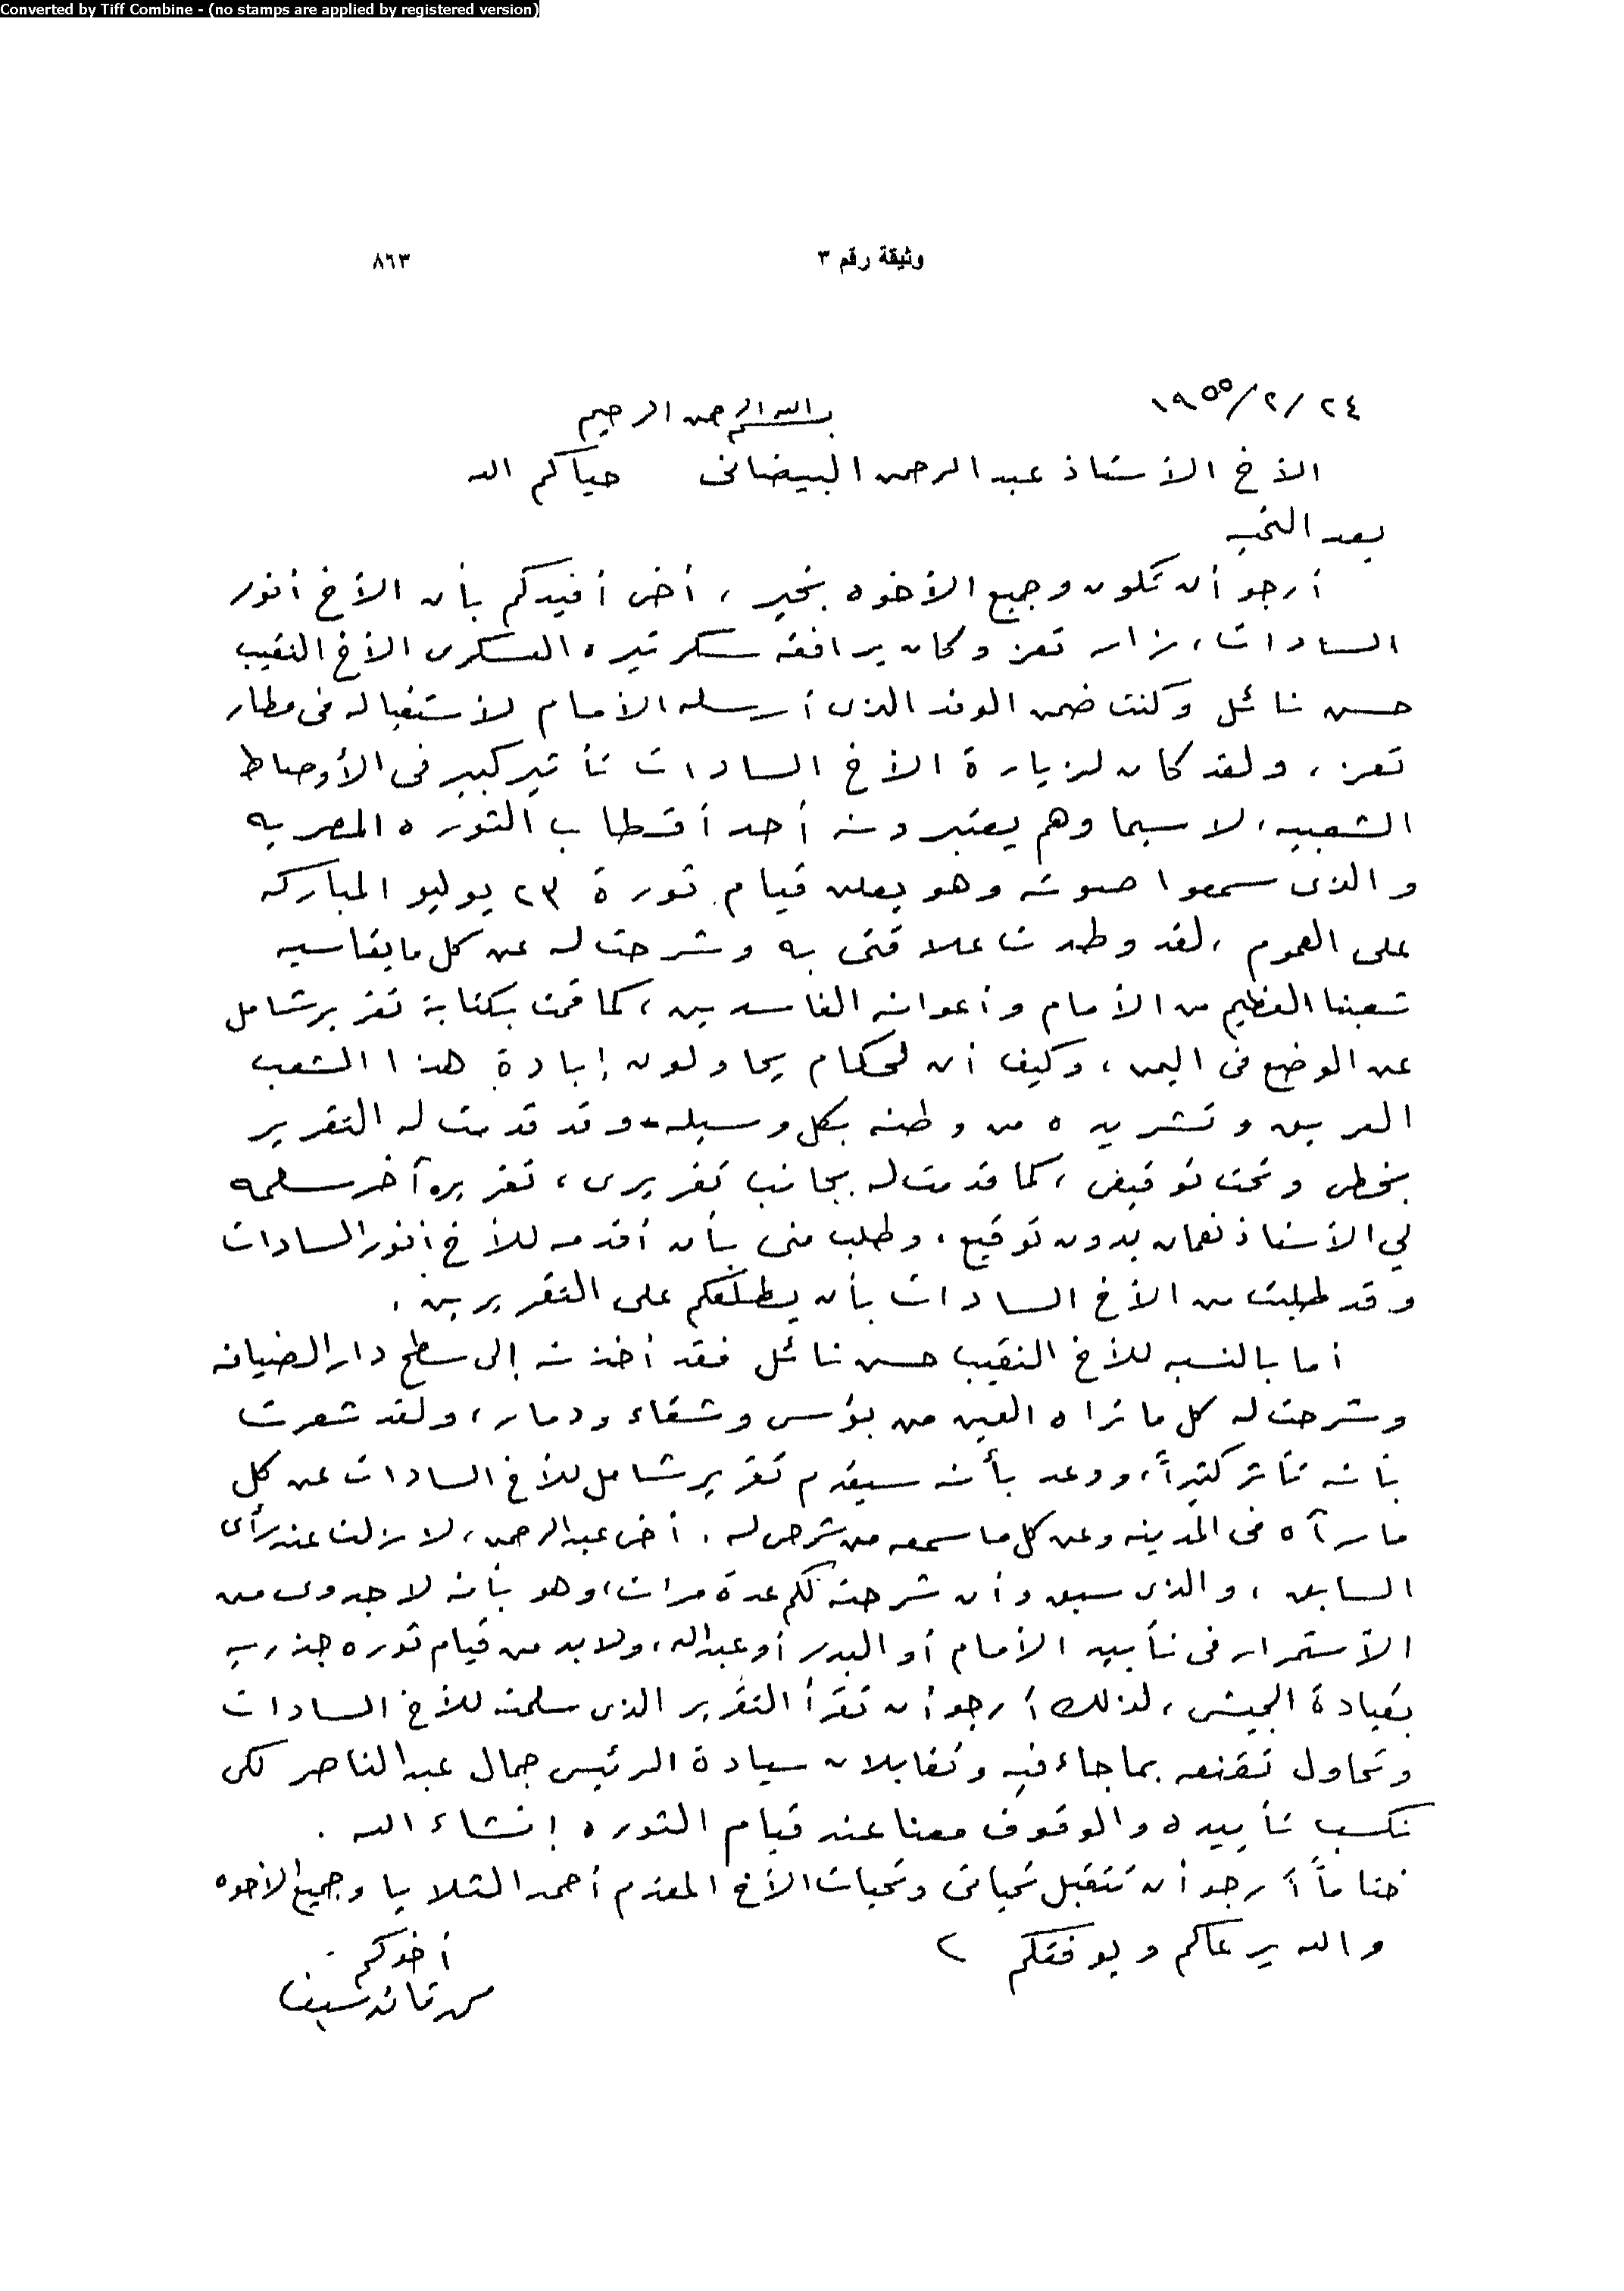 Converted by Tiff Combine - (no stamps are applied by registered version)
وثيقة رقم ٣ ٨٦٣
٢٤/٢/١٩٥٥
بسم الله الرحمن الرحيم
الأخ الأستاذ عبد الرحمن البيضانى حياكم الله
بعد التحيه
أرجو أن تكون وجميع الأخوه بخير، أخى أفيدكم بأن الأخ أنور
السادات، زار تعز وكان يرافقه سكرتيره العسكرى الأخ النقيب
حسن نائل وكنت ضمن الوفد الذى أرسله الأمام لأستقباله فى مطار
تعز، ولقد كان لزيارة الأخ السادات تأثير كبير فى الأوصاط
الشعبيه، لا سيما وهم يعتبرونه أحد أقطاب الثوره المصريه
والذى سمعوا صوته وهو يعلن قيام ثورة ٢٣ يوليو المباركه
على العموم، لقد وطدت علاقتى به وشرحت له عن كل ما يقاسيه
شعبنا العظيم من الأمام وأعوانه الفاسدين، كما قمت بكتابة تقرير شامل
عن الوضع فى اليمن، وكيف أن الحكام يحاولون إبادة هذا الشعب
العريق وتشريده من وطنه بكل وسيله وقد قدمت له التقرير
بخطى وتحت توقيعى، كما قدمت له بجانب تقريرى، تقريره آخر سلمه
لي الأستاذ نعمان بدون توقيع، وطلب منى بأن أقدمه للأخ أنور السادات
وقد طلبت من الأخ السادات بأن يطلعكم على التقريرين.
أما بالنسبه للأخ النقيب حسن نائل فقد أخذته إلى سطح دار الضيافه
وشرحت له كل ما تراه العين من بؤس وشقاء ودمار، ولقد شعرت
بأنه تأثر كثيراً، ووعد بأنه سيقدم تقرير شامل للأخ السادات عن كل
ما رآه فى المدينه وعن كل ما سمعه من شرحى له. أخى عبد الرحمن، لا زلت عند رأى
السابق، والذى سبق وأن شرحته لكم عدة مرات، وهو بأنه لا جدوى من
الأستمرار فى تأييد الأمام أو البدر أو عبدالله، ولابد من قيام ثوره جذريه
بقيادة الجيش، لذلك أرجو أن تقرأ التقرير الذى سلمته للأخ السادات
وتحاول تقنعه بما جاء فيه وتقابلان سيادة الرئيس جمال عبد الناصر لكى
نكسب تأييده والوقوف معنا عند قيام الثوره إنشاء الله.
ختاماً أرجو أن تتقبل تحياتى وتحيات الأخ المقدم أحمد الثلايا وجميع الأخوه
والله يرعاكم ويوفقكم
أخوكم
قائد سيف